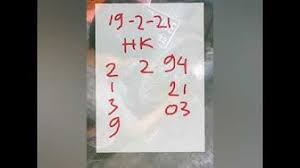 19-2-21
HK
2 2 94
1 21
3 03
9